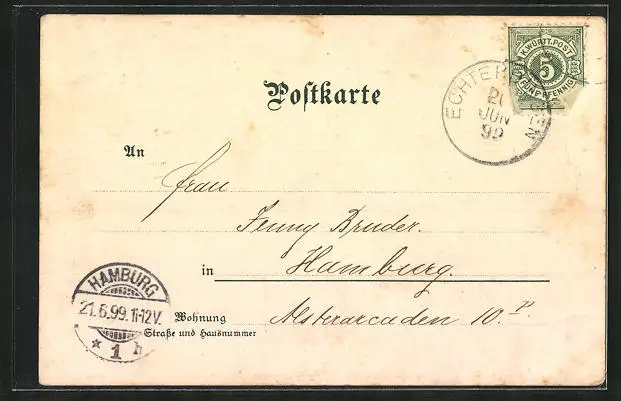 K. WÜRTT. POST
5
FÜNF PFENNIG
Postkarte
20
JUN
99
An
Frau
Jenny Bruder.
in Hamburg.
HAMBURG
21.6.99.11-12V.
* 1 h
Wohnung Alsterarcaden 10.
Straße und Hausnummer